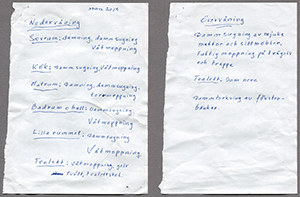 mars 2013
Nedervåning
Sovrum: damning, dammsugning
Våtmoppning
Kök: Dammsugning, Våtmoppning
Matrum: damning, dammsugning,
torrmoppning
Badrum o hall: Dammsugning
Våtmoppning
Lilla rummet: dammsugning
Våtmoppning.
Toalett: Våtmoppning, golv
tvätt, toalettstol.
Övervåning
Dammsugning av mjuka
mattor och sittmöbler,
fuktig moppning på trägolv
och trappa
Toalett: Som nere
Dammtorkning av fönster-
bänkar.